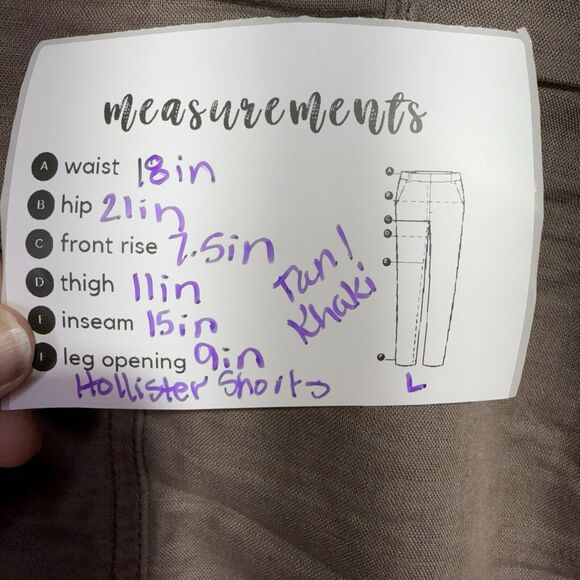 measurements
A waist 18in
B hip 21in
C front rise 7.5in
D thigh 11in
E inseam 15in
F leg opening 9in
Hollister Shorts
Tan/
Khaki
L